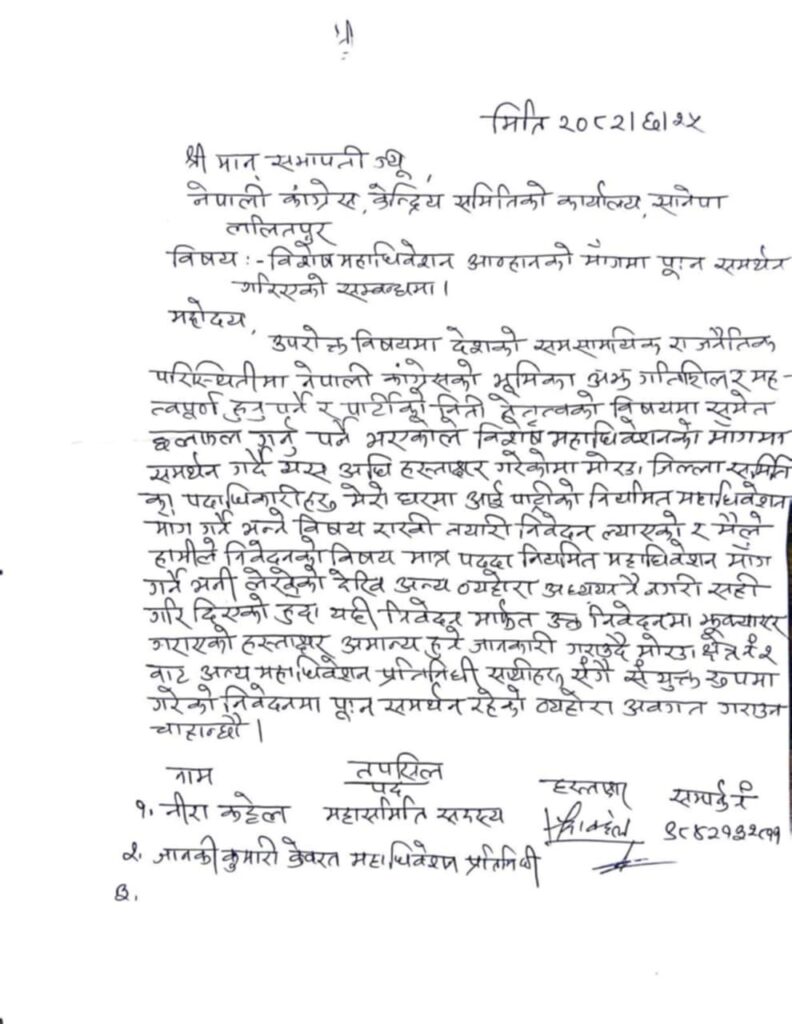 श्री
मिति २०८२।६।२५
श्री मान् सभापती ज्यू,
नेपाली कांग्रेस, केन्द्रिय समितिको कार्यालय, सानेपा
ललितपुर
विषय :- विशेष महाधिवेशन आव्हानको माँगमा पूःन समर्थन
गरिएको सम्बन्धमा।
महोदय,
उपरोक्त विषयमा देशको समसामयिक राजनैतिक
परिस्थितीमा नेपाली कांग्रेसको भूमिका अझ गतिशिल र मह-
त्वपूर्ण हुनु पर्ने र पार्टीको निती नेतृत्वको विषयमा समेत
छलफल गर्नु पर्ने भएकोले विशेष महाधिवेशनको माँगमा
समर्थन गर्दै यस अघि हस्ताक्षर गरेकोमा मोरङ जिल्ला समिति
का पदाधिकारीहरु मेरो घरमा आई पार्टीको नियमित महाधिवेशन
माग गर्ने भन्ने विषय राखी तयारी निवेदन ल्याएको र मैले
हामीले निवेदनको विषय मात्र पढ्दा नियमित महाधिवेशन माँग
गर्ने भनी लेखेको देखि अन्य व्यहोरा अध्ययन नै नगरी सही
गरि दिएको हुदा यही निवेदन मार्फत उक्त निवेदनमा झुक्याएर
गराएको हस्ताक्षर अमान्य हुने जानकारी गराउदै मोरङ क्षेत्र नं २
बाट अन्य महाधिवेशन प्रतिनिधी साथीहरु सँगै संयुक्त रुपमा
गरेको निवेदनमा पूःन समर्थन रहेको व्यहोरा अवगत गराउन
चाहान्छौ।
तपसिल
नाम पद हस्ताक्षर सम्पर्क नं
१. नीरा कडेल महासमिति सदस्य ९८४२१३२८११
२. जानकी कुमारी केवरत महाधिवेशन प्रतिनिधी
३.